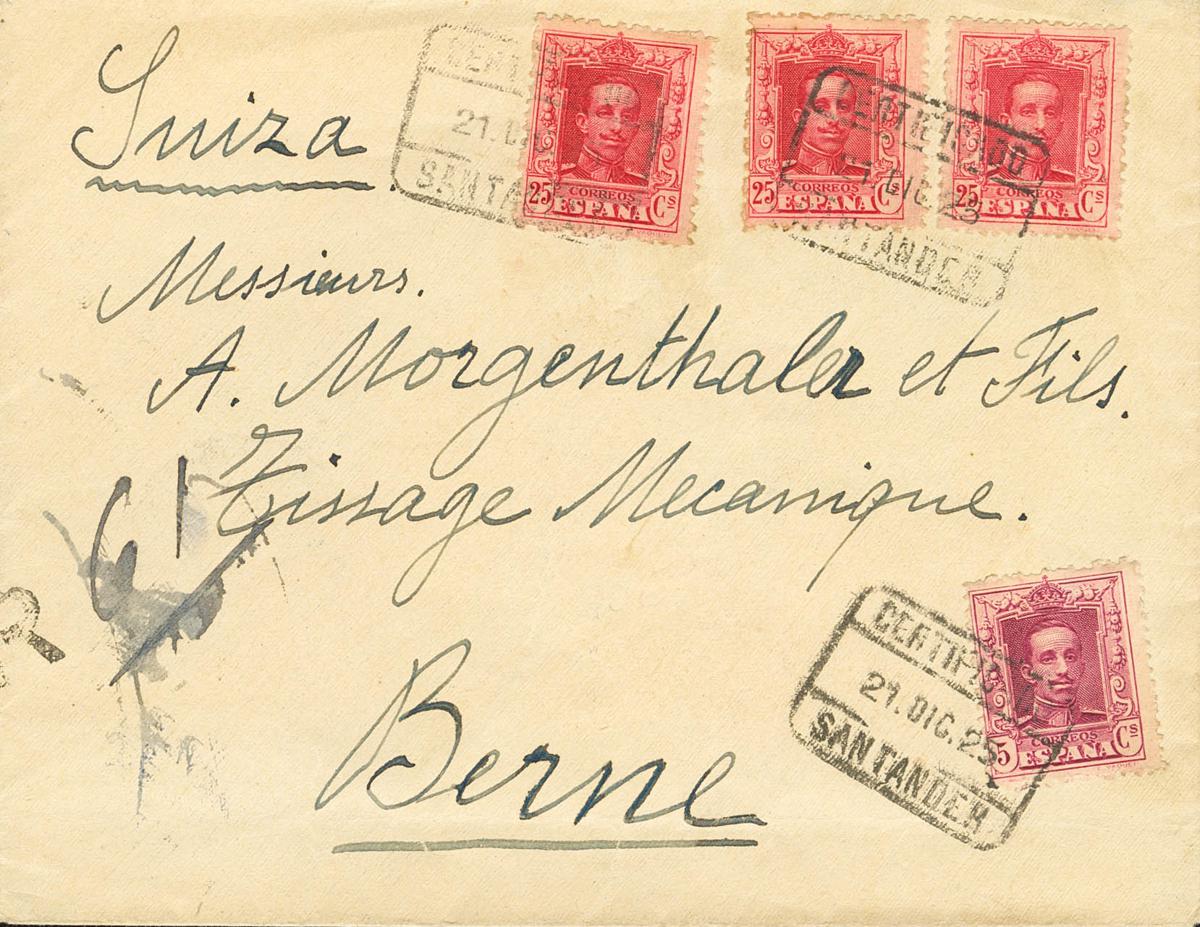 Suiza
Messieurs.
A. Morgenthaler et Fils.
Tissage Mecanique.
Berne
61
CERTIF
21. DIC
SANTA
25 CORREOS Cs
ESPAÑA
25 CORREOS Cs
ESPAÑA
25 CORREOS Cs
ESPAÑA
CERTIFICADO
21 DIC. 23
SANTANDER
CERTIFIC
21. DIC. 23
SANTANDER
5 CORREOS Cs
ESPAÑA